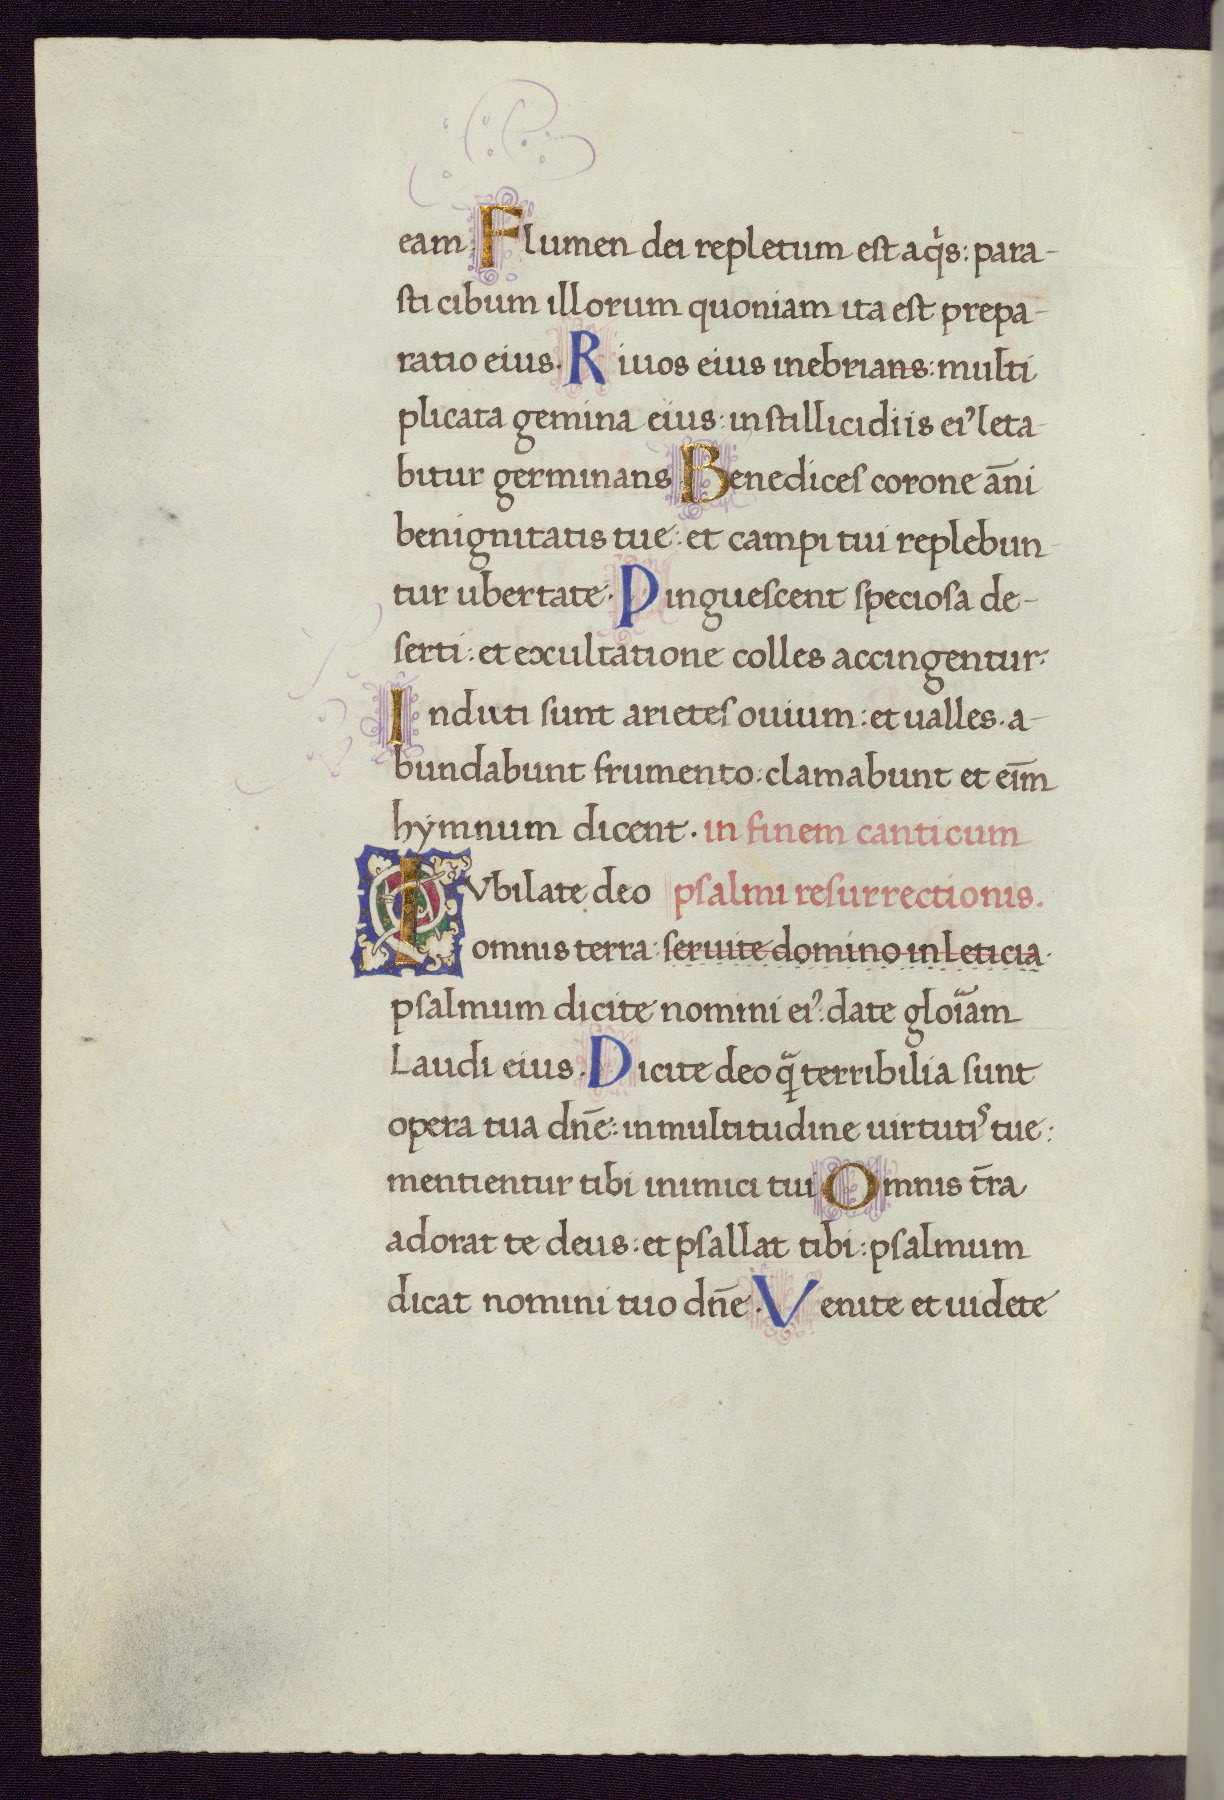 eam. Flumen dei repletum est aq̇s: para-
sti cibum illorum quoniam ita est prepa-
ratio eius. Riuos eius inebrians: multi
plicata gemina eius: in stillicidiis ei᾽ leta-
bitur germinans. Benedices corone āni
benignitatis tue: et campi tui replebun-
tur ubertate. Pinguescent speciosa de-
serti: et excultatione colles accingentur:
Induti sunt arietes ouium: et ualles. a-
bundabunt frumento: clamabunt et eīm
hẏmnum dicent. in finem canticum
IVbilate deo psalmi resurrectionis.
omnis terra: seruite domino in Leticia.
psalmum dicite nomini ei᾽: date gloīam
Laudi eius. Dicite deo q̄ terribilia sunt
opera tua dn̄e: in multitudine uirtutiˢ tue:
mentientur tibi inimici tui. Omnis t̄ra
adorat te deus: et psallat tibi: psalmum
dicat nomini tuo dn̄e. Venite et uidete